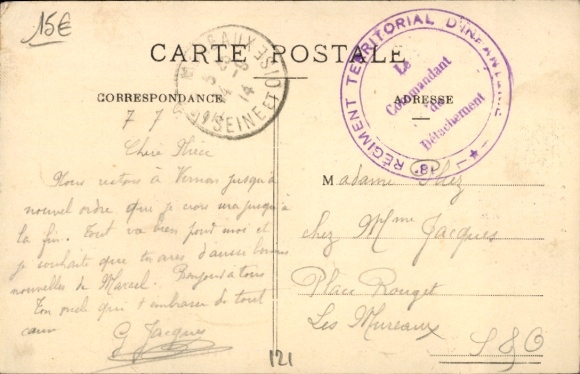 15€
CARTE POSTALE
CORRESPONDANCE
ADRESSE
RÉGIMENT TERRITORIAL D'INFANTERIE
18e
Le
Commandant
du
Détachement
LES MUREAUX
SEINE ET OISE
14
7 7
Chère Nièce
Nous restons à Vernon jusqu'à
nouvel ordre que je crois sera jusqu'à
la fin. Tout va bien pour moi et
je souhaite que tu aies d'aussi bonnes
nouvelles de Marcel. Bonjour à tous
Ton oncle qui t'embrasse de tout
cœur
G Jacques
Madame
chez Mme Jacques
Place Rouget
Les Mureaux
S & O
121